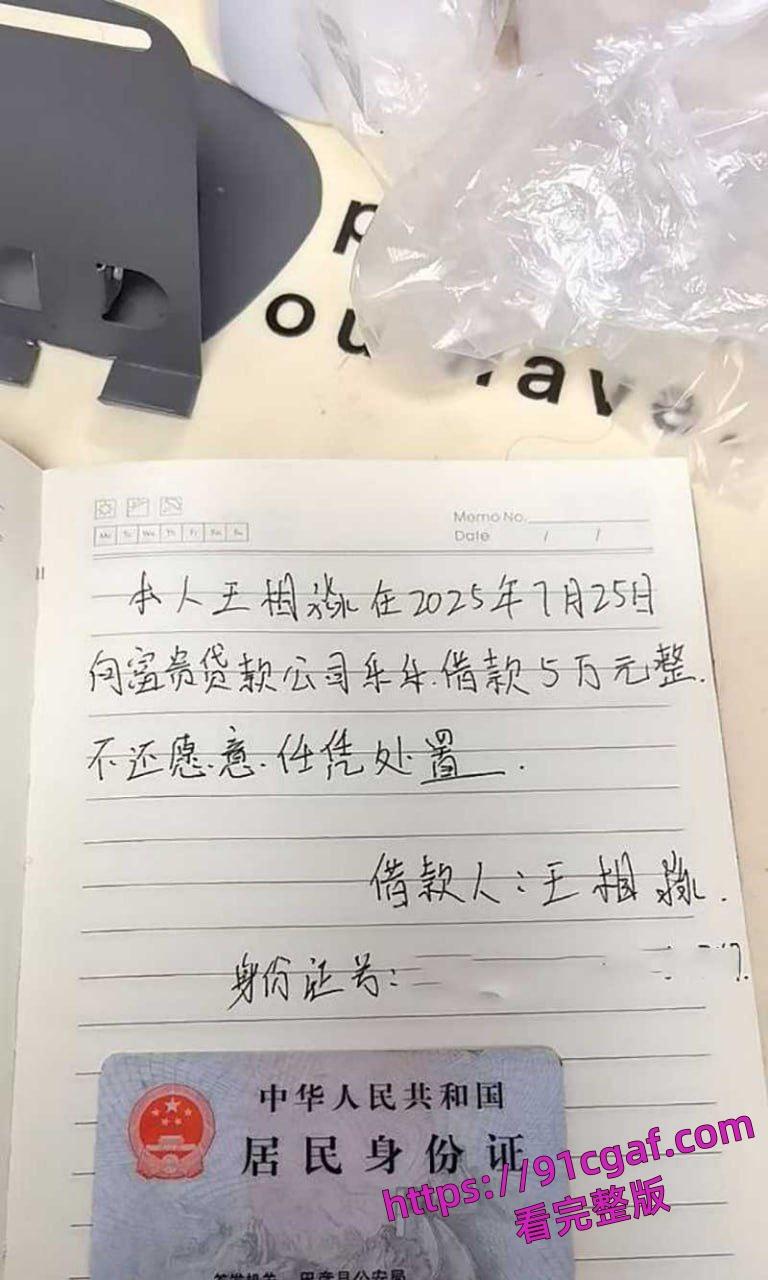 p
ou
ave.
Memo No.
Mo Tu We Th Fr Sa Su
Date / /
本人王相淼在2025年7月25日
向富贵贷款公司乐乐.借款5万元整.
不还愿意.任凭处置.
借款人:王相淼.
身份证号:
中华人民共和国
居民身份证
https://91cgaf.com
看完整版
签发机关
县公安局